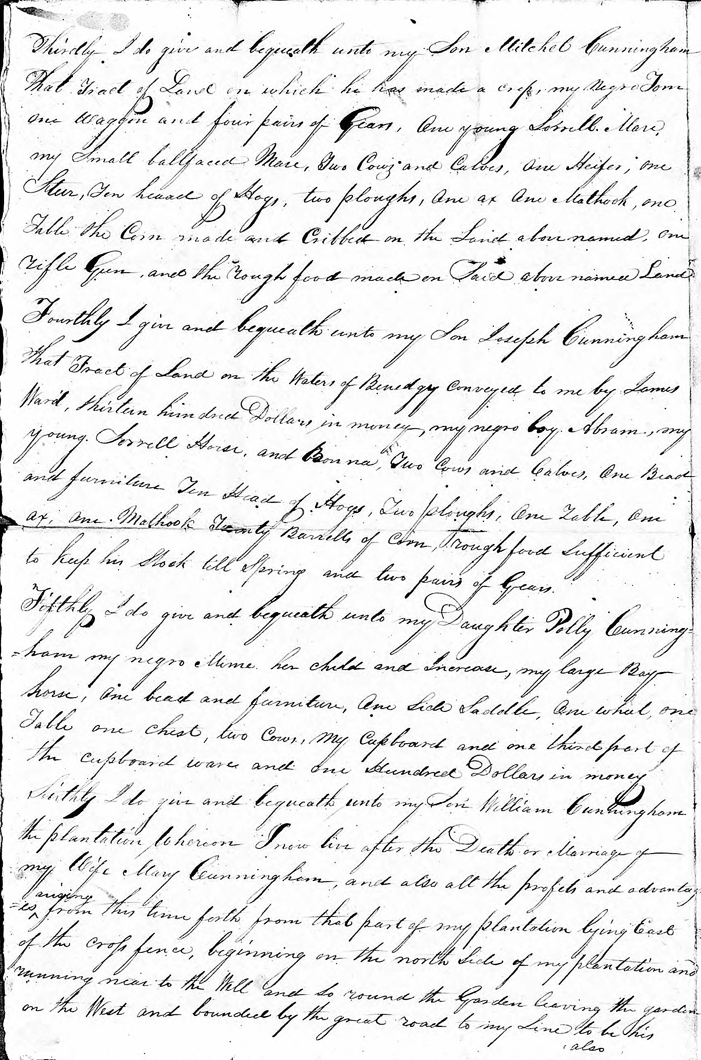 Thirdly I do give and bequeath unto my Son Mitchel Cunningham
that Tract of Land on which he has made a crop, my Negro Tom
one Waggon and four pairs of Gears, One young Sorrell Mare,
my Small ballfaced Mare, Two Cows and Calves, one Heifer, one
Steer, Ten heaad of Hogs, two ploughs, One ax One Mathook, one
Table the Corn made and Cribbed on the Land above named, one
rifle Gun, and the rough food made on Said above named Land
Fourthly I give and bequeath unto my Son Joseph Cunningham
that Tract of Land on the Waters of conveyed to me by James
Ward, thirteen hundred Dollars in money, my negro boy Abram, my
young Sorrell Horse, and Two Cows and Calves, One Bead
and furniture Ten Head of Hogs, Two ploughs, One Table, One
ax, one Mathook Twenty Barrells of Corn, rough food Sufficient
to keep his Stock till Spring and two pairs of Gears.
Fifthly I do give and bequeath unto my Daughter Polly Cunning-
=ham my negro Mime her child and Increase, my large Bay
horse, One bead and furniture, One Side Saddle, One wheel, one
Table one chest, two Cows, my Cupboard and one third part of
the cupboard ware and one Hundred Dollars in money
Sixthly I do give and bequeath unto my Son William Cunningham
the plantation, Whereon I now live after the Death or Marriage of
my Wife Mary Cunningham, and also all the profets and advantag
arising
=es ^ from this time forth from that part of my plantation lying East
of the cross fence, beginning on the north Side of my plantation and
running near to the Well and So round the Garden leaving the garden
on the West and bounded by the great road to my Line to be his
also